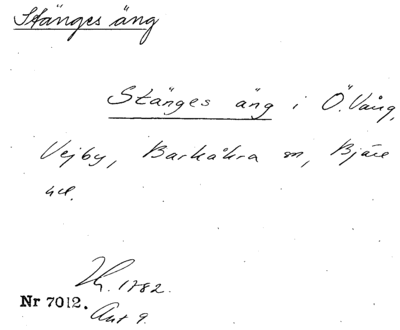 Stänges äng
Stänges äng i Ö. Vång,
Vejby, Barkåkra sn, Bjäre
hd.
1782.
Nr 7012.
Akt 9.